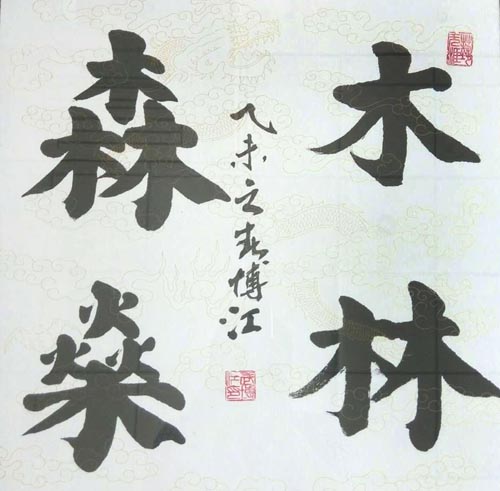 木林
森燊
乙未之春博江